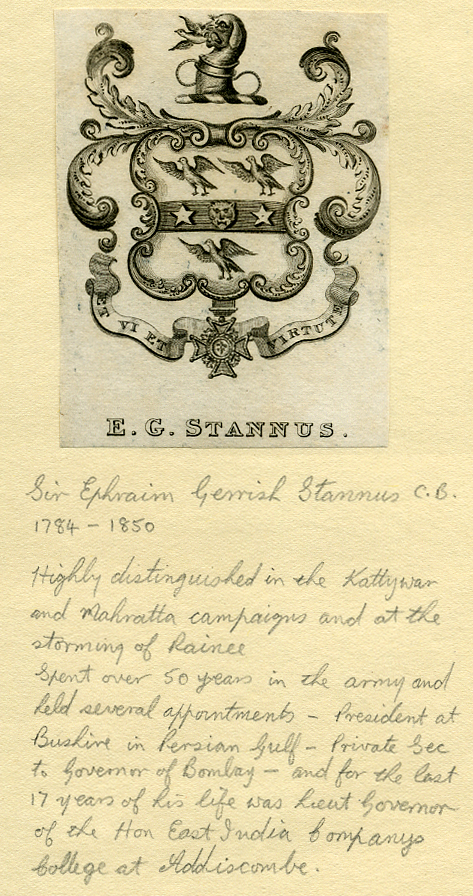 ET VI ET VIRTUTE
E. G. STANNUS.
Sir Ephraim Gerrish Stannus C.B.
1784 – 1850
Highly distinguished in the Kattywar
and Mahratta campaigns and at the
storming of Rainee
Spent over 50 years in the army and
held several appointments – President at
Bushire in Persian Gulf – Private Sec
to Governor of Bombay – and for the last
17 years of his life was Lieut Governor
of the Hon East India Companys
College at Addiscombe.